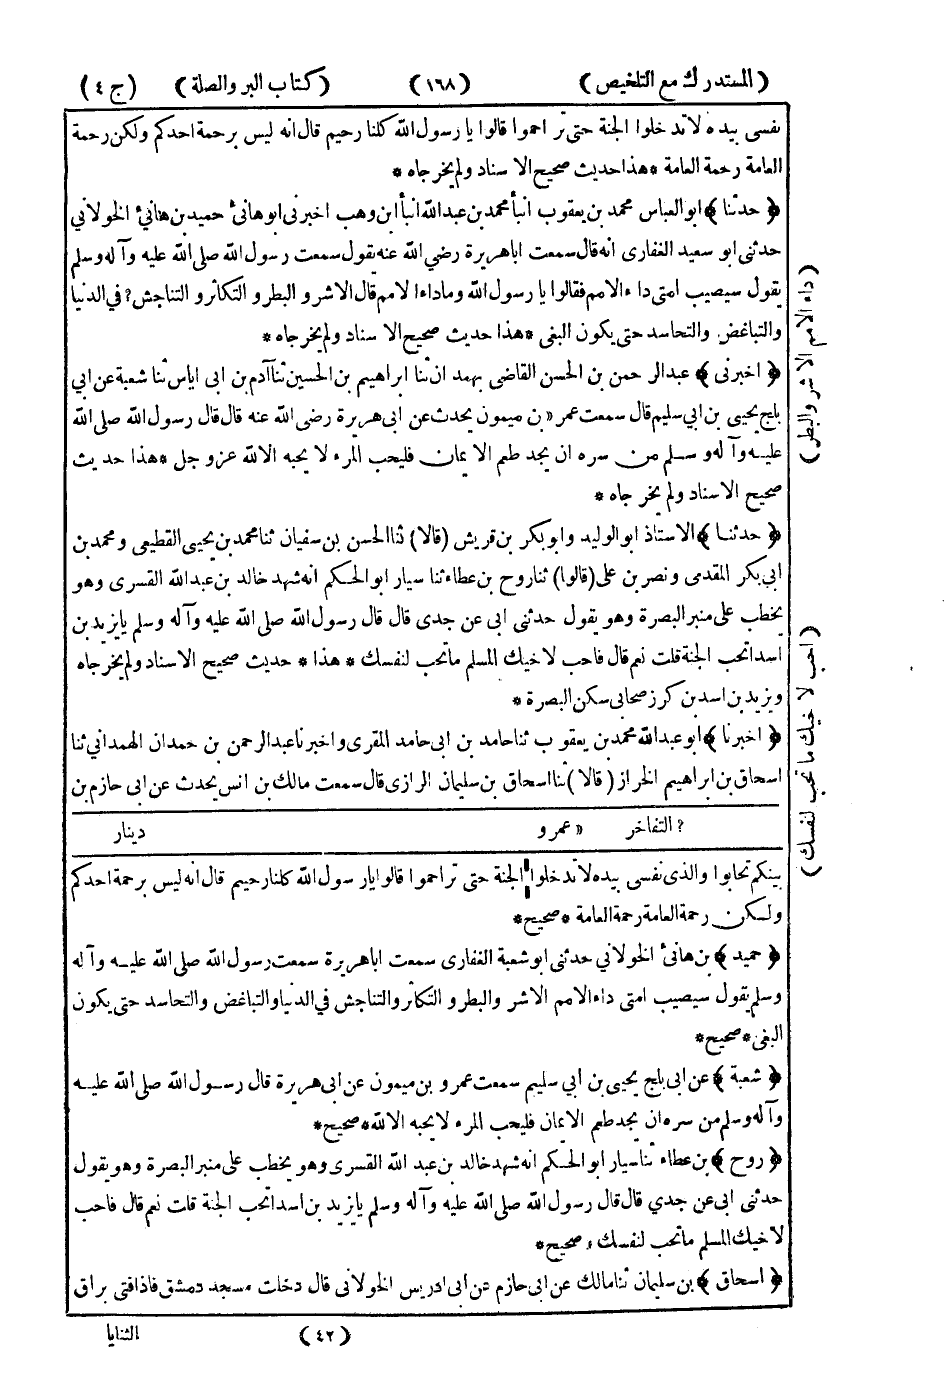 (المستدرك مع التلخيص) (١٦٨) (كتاب البر والصلة) (ج ٤)
نفسى بيده لا تدخلوا الجنة حتى تراحموا قالوا يا رسول الله كلنا رحيم قال انه ليس برحمة احدكم ولكن رحمة
العامة رحمة العامة * هذا حديث صحيح الاسناد ولم يخرجاه *
﴿ حدثنا ﴾ ابو العباس محمد بن يعقوب انبأ محمد بن عبد الله انبأ ابن وهب اخبرنى ابو هانئ حميد بن هانئ الخولاني
حدثنى ابو سعيد الغفارى انه قال سمعت اباهريرة رضي الله عنه يقول سمعت رسول الله صلى الله عليه وآله وسلم
يقول سيصيب امتى داء الامم فقالوا يا رسول الله وما داء الامم قال الاشر و البطر و التكاثر و التناجش؟ في الدنيا
والتباغض والتحاسد حتى يكون البغى * هذا حديث صحيح الاسناد ولم يخرجاه *
﴿ اخبرنى ﴾ عبد الرحمن بن الحسن القاضى بهمدان ثنا ابراهيم بن الحسين ثنا آدم بن ابى اياس ثنا شعبة عن ابي
بلج يحيى بن ابي سليم قال سمعت عمر « بن ميمون يحدث عن ابى هريرة رضى الله عنه قال قال رسول الله صلى الله
عليه وآله وسلم من سره ان يجد طعم الايمان فليحب المرء لا يحبه الا لله عز وجل * هذا حديث
صحيح الاسناد ولم يخرجاه *
﴿ حدثنا ﴾ الاستاذ ابو الوليد وابو بكر بن قريش (قالا) ثنا الحسن بن سفيان ثنا محمد بن يحيى القطيعى و محمد بن
ابي بكر المقدمى و نصر بن على (قالوا) ثنا روح بن عطاء ثنا سيار ابو الحكم انه شهد خالد بن عبد الله القسرى وهو
يخطب على منبر البصرة وهو يقول حدثنى ابى عن جدى قال قال رسول الله صلى الله عليه وآله وسلم يا يزيد بن
اسد اتحب الجنة قلت نعم قال فاحب لاخيك المسلم ما تحب لنفسك * هذا * حديث صحيح الاسناد ولم يخرجاه
ويزيد بن اسد بن كرز صحابى سكن البصرة *
﴿ اخبرنا ﴾ ابو عبد الله محمد بن يعقوب ثنا حامد بن ابى حامد المقرى و اخبرنا عبد الرحمن بن حمدان الهمدانى ثنا
اسحاق بن ابراهيم الخراز (قالا) ثنا اسحاق بن سليمان الرازى قال سمعت مالك بن انس يحدث عن ابى حازم بن
؟ التفاخر « عمرو دينار
بينكم تحابوا والذى نفسى بيده لا تدخلوا الجنة حتى تراحموا قالوا يا رسول الله كلنا رحيم قال انه ليس برحمة احدكم
ولكن رحمة العامة رحمة العامة * صحيح *
﴿ حميد ﴾ بن هانئ الخولاني حدثنى ابو شعبة الغفارى سمعت اباهريرة سمعت رسول الله صلى الله عليه وآله
وسلم يقول سيصيب امتى داء الامم الاشر والبطر و التكاثر والتناجش في الدنيا والتباغض والتحاسد حتى يكون
البغى * صحيح *
﴿ شعبة ﴾ عن ابى بلج يحيى بن أبي سليم سمعت عمرو بن ميمون عن ابى هريرة قال رسول الله صلى الله عليه
وآله وسلم من سره ان يجد طعم الايمان فليحب المرء لا يحبه الا لله * صحيح *
﴿ روح ﴾ بن عطاء ثنا سيار ابو الحكم انه شهد خالد بن عبد الله القسرى وهو يخطب على منبر البصرة وهو يقول
حدثنى ابى عن جدي قال قال رسول الله صلى الله عليه وآله وسلم يا يزيد بن اسد اتحب الجنة قلت نعم قال فاحب
لاخيك المسلم ما تحب لنفسك * صحيح *
﴿ اسحاق ﴾ بن سليمان ثنا مالك عن ابى حازم عن ابى ادريس الخولانى قال دخلت مسجد دمشق فاذا فتى براق
(٤٢) الثنايا
(داء الامم الاشر والبطر)
(احب لاخيك ما تحب لنفسك)